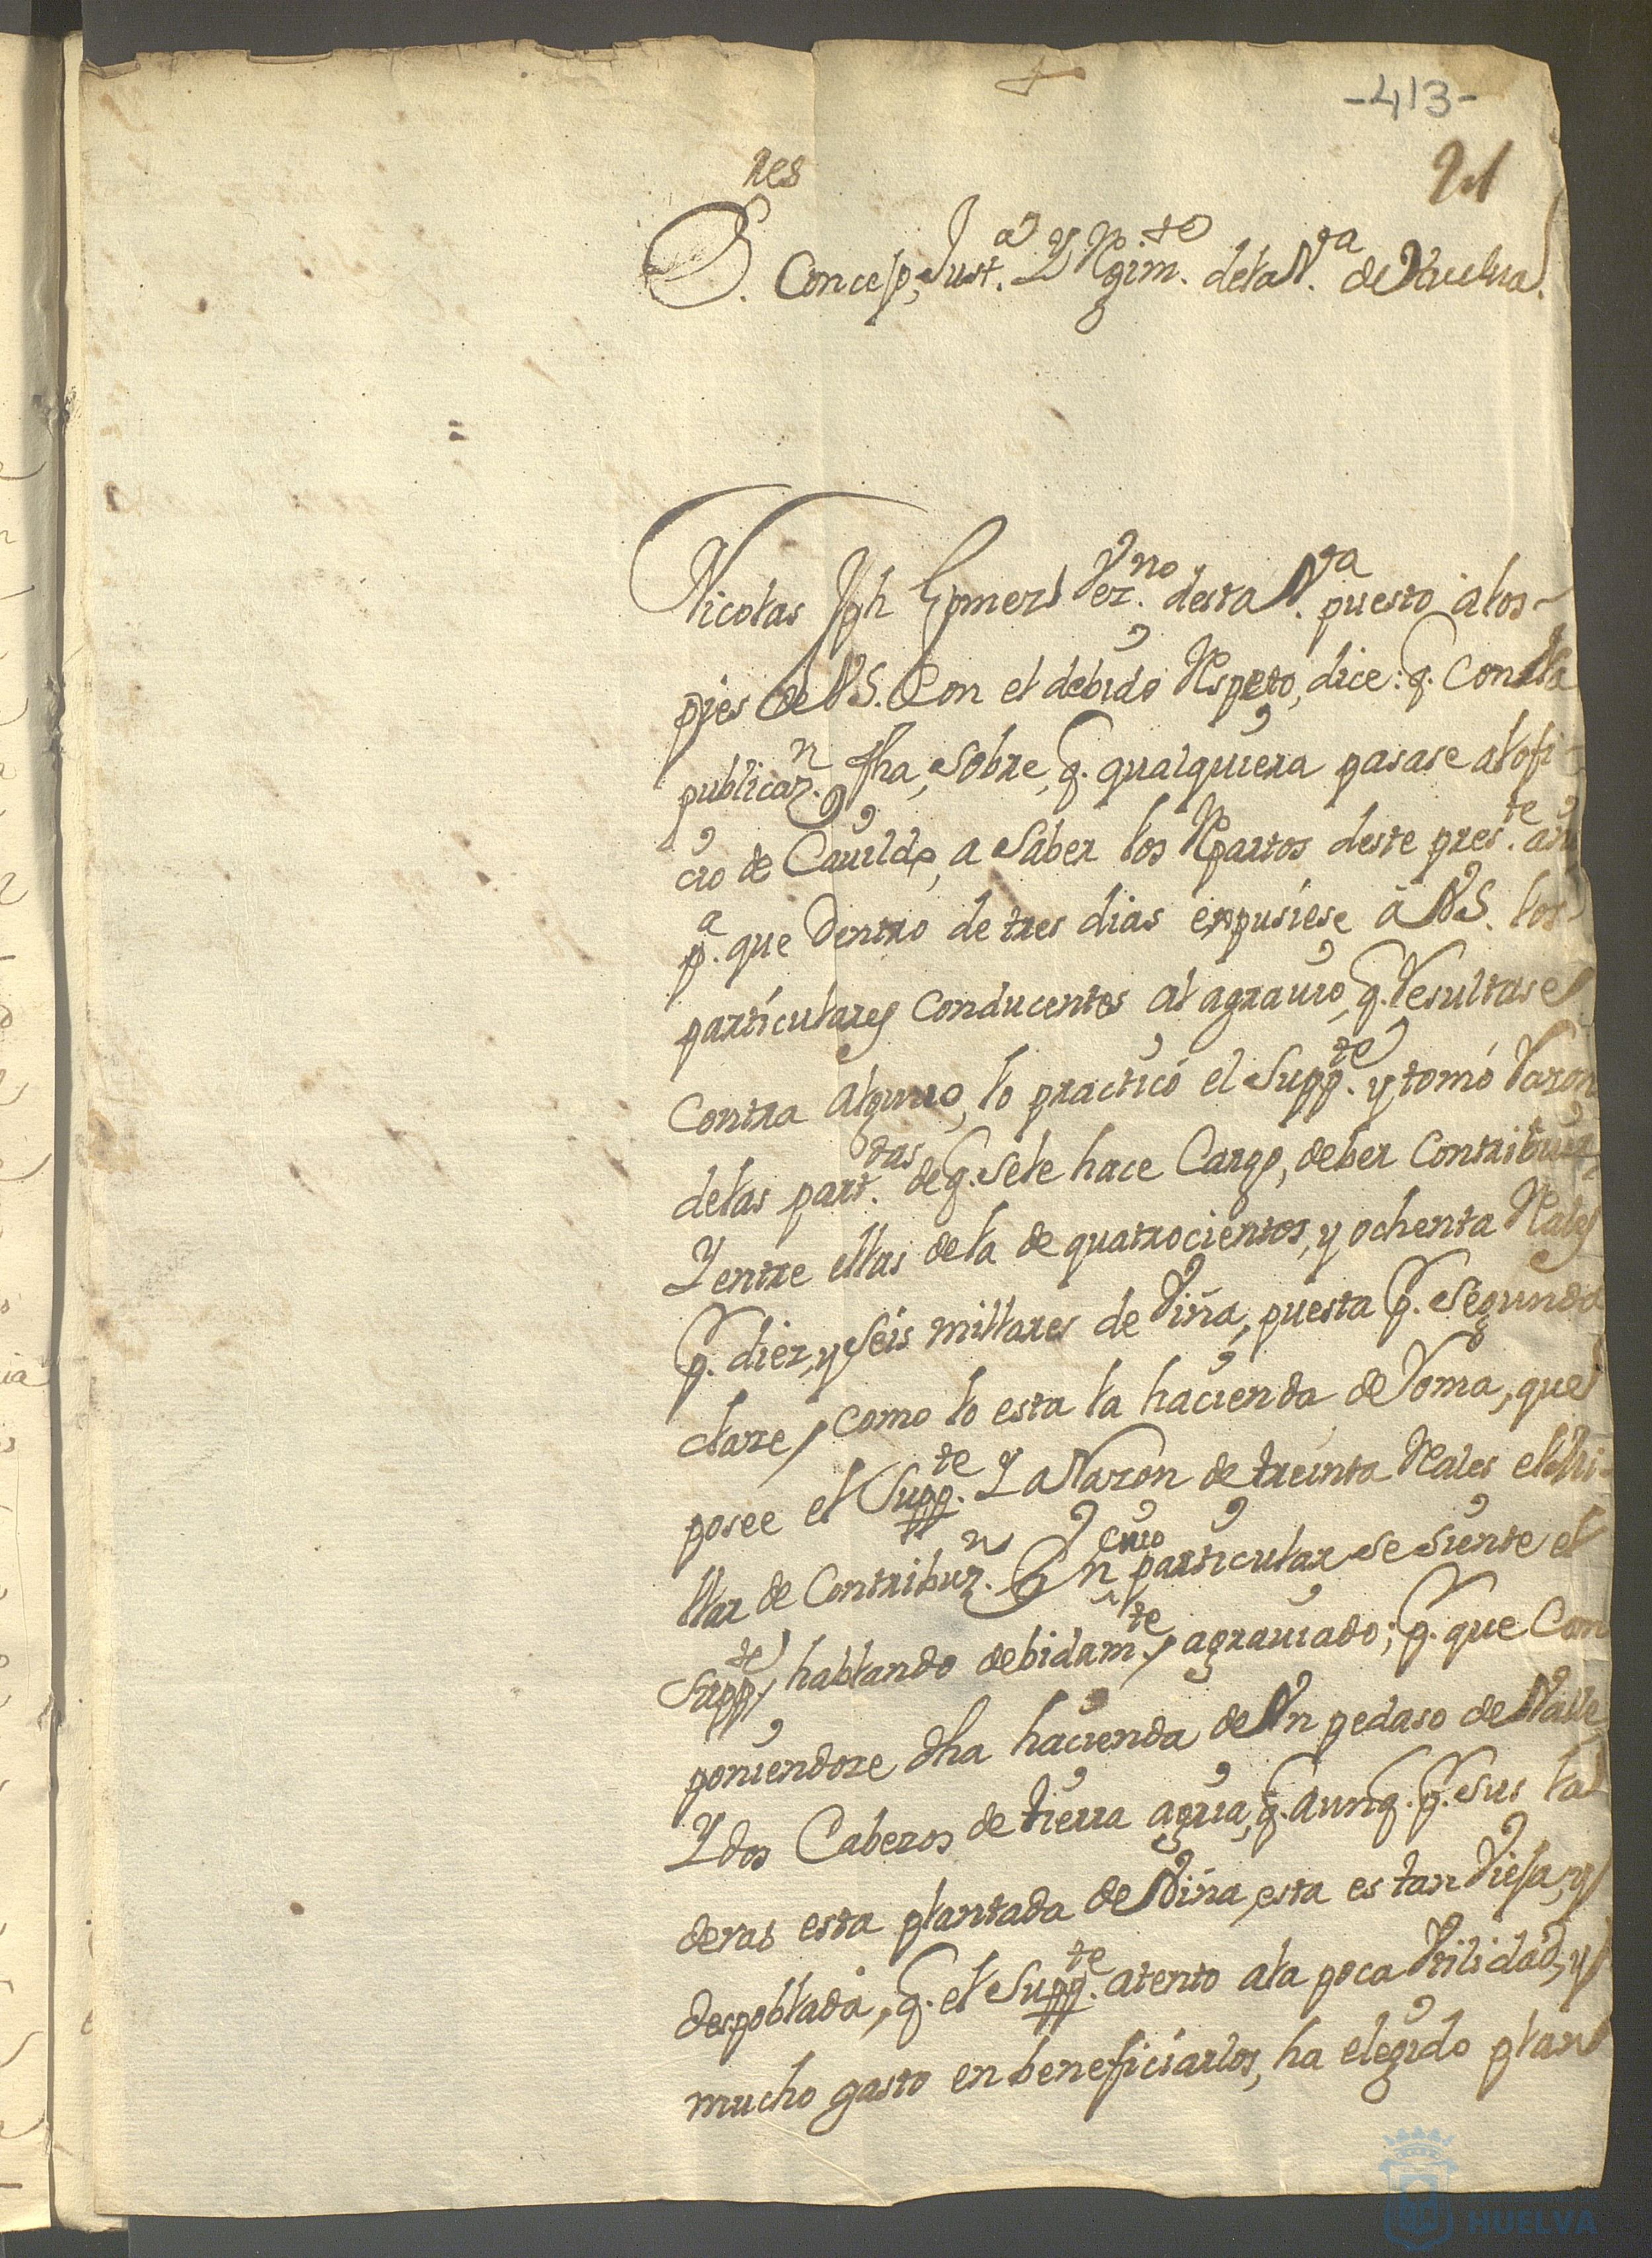 -413-
21
S.res Concejo, Just.a Y Regim.to de la V.a de Huelva.
Nicolas Jph Gomez Vez.no desta V.a puesto a los
pies de VS. Con el debido Respeto, dice: q. Con la
publicaz.n fha, sobre, q. qualquiera pasase al ofi-
cio de Cauildo, a saber los Repartos deste pres.te año
p.a que Dentro de tres dias expusiese â VS. los
particulares Conducentes al agrauio, q. Resultase
Contra alguno, lo practicó el Supp.te y tomó Razon
delas part.das de q. se le hace Cargo, deber Contribuir,
Y entre ellas dela de quatrocientos, y ochenta Reales
p. diez, y seis millares de Viña, puesta p. Segunda
claze, como lo esta la hacienda de Roma, que
posèe el Supp.te Y a Razon de treinta Reales el Mi-
llar de Contribuz.n En cuio particular se siente el
Supp.te, hablando debidam.te, agrauiado; p. que Com
poniendoze dha hacienda de Vn pedaso de Valle
Y dos Cabezos de tierra agria, q. aunq. p. Sus la-
deras esta plantada de Viña, esta es tan Vieja, y
despoblada, q. el Supp.te atento ala poca Vtilidad, y
mucho gasto en beneficiarlos, ha elegido plan
HUELVA